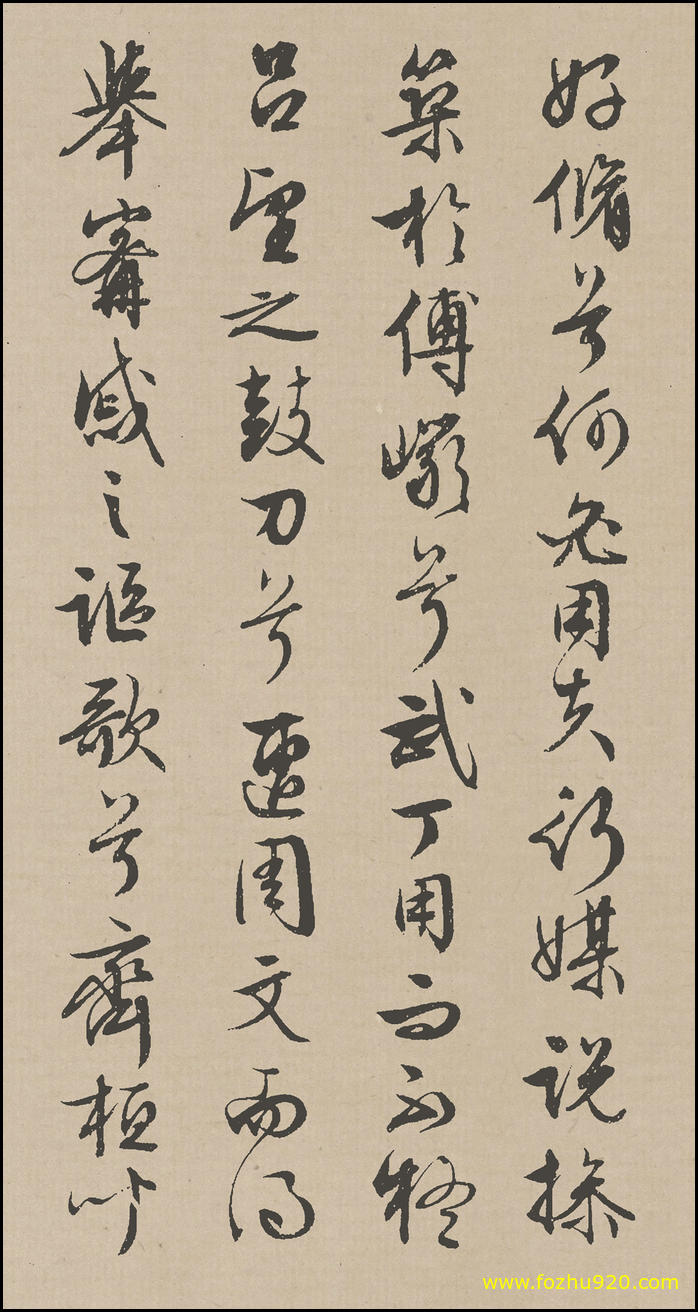 好脩兮何必用夫行媒説操
築於傅巖兮武丁用而不疑
吕望之鼓刀兮遭周文而得
舉甯戚之謳歌兮齊桓
www.fozhu920.com